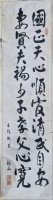 國正天心順官清民自安
妻賢夫禍少子孝父心寬